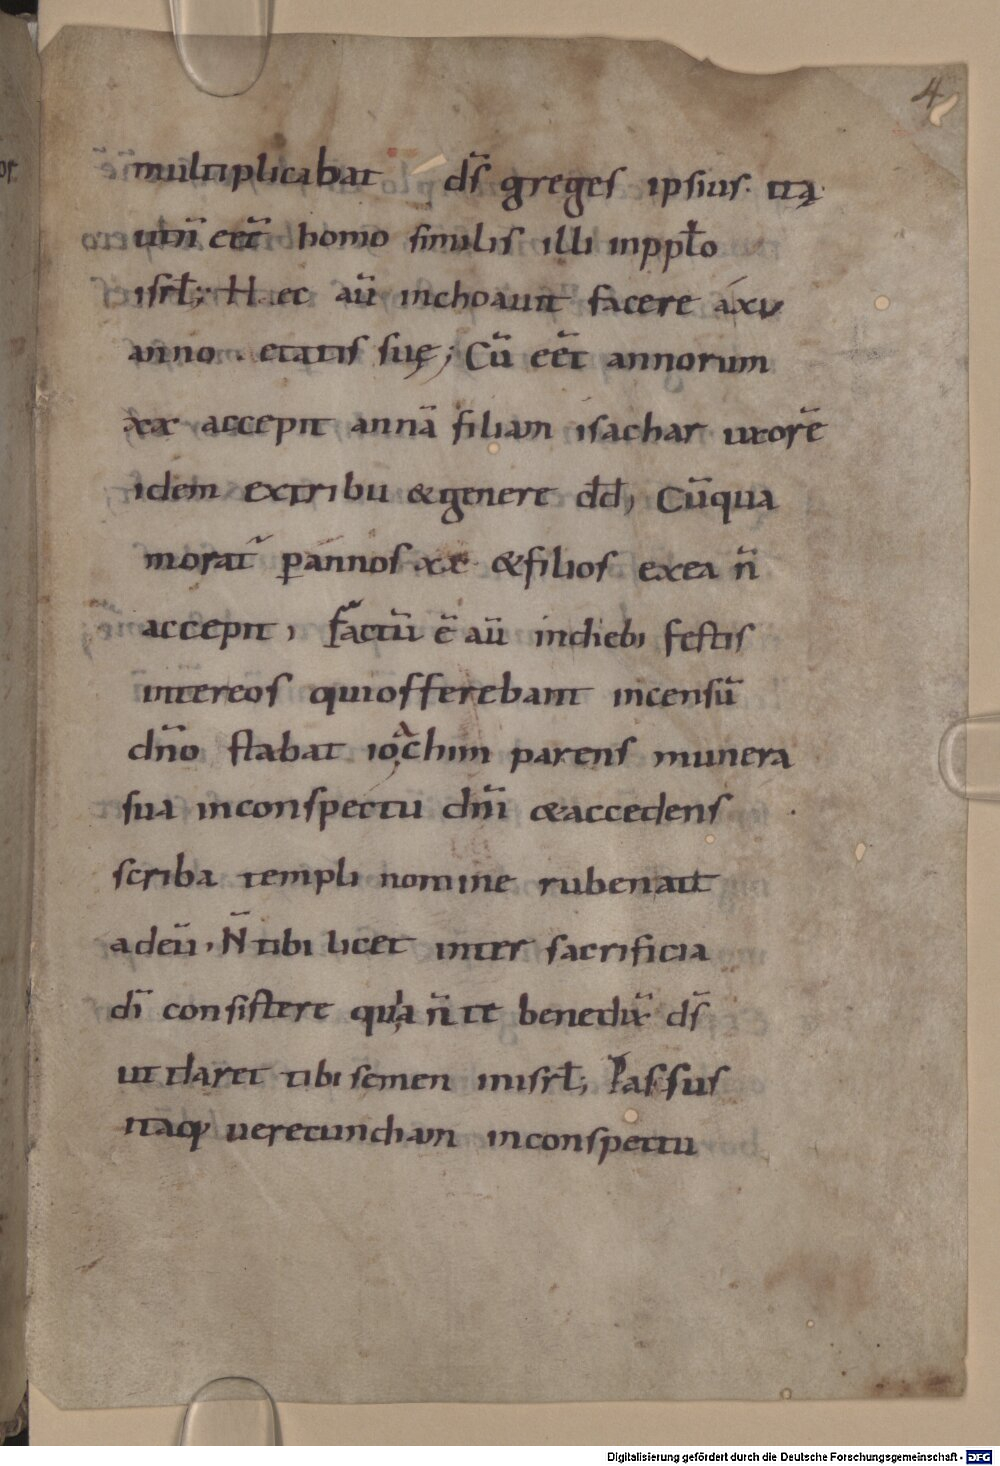 4
multiplicabat ds̄ greges ipsius. ita
utn̄ eēt homo similis illi inppło
isrł; Haec aū inchoauit facere axv
anno. etatis suę; Cū eēt annorum
xx accepit annā filiam isachar uxorē
idem extribu &genere dd̄, Cūqua
morat᷒ ꝑannos xx &filios exea n̄
accepit, Factū ē aū indiebi festis
intereos quiofferebant incensū
dn̄o stabat ioachim parens munera
sua inconspectu dn̄i &accedens
scriba templi nomine rubenait
adeū, N̄ tibi licet inter sacrificia
dī consistere quia n̄ te benedix̄ ds̄
ut daret tibi semen inisrł; Passus
itaq; uerecundiam inconspectu
Digitalisierung gefördert durch die Deutsche Forschungsgemeinschaft - DFG